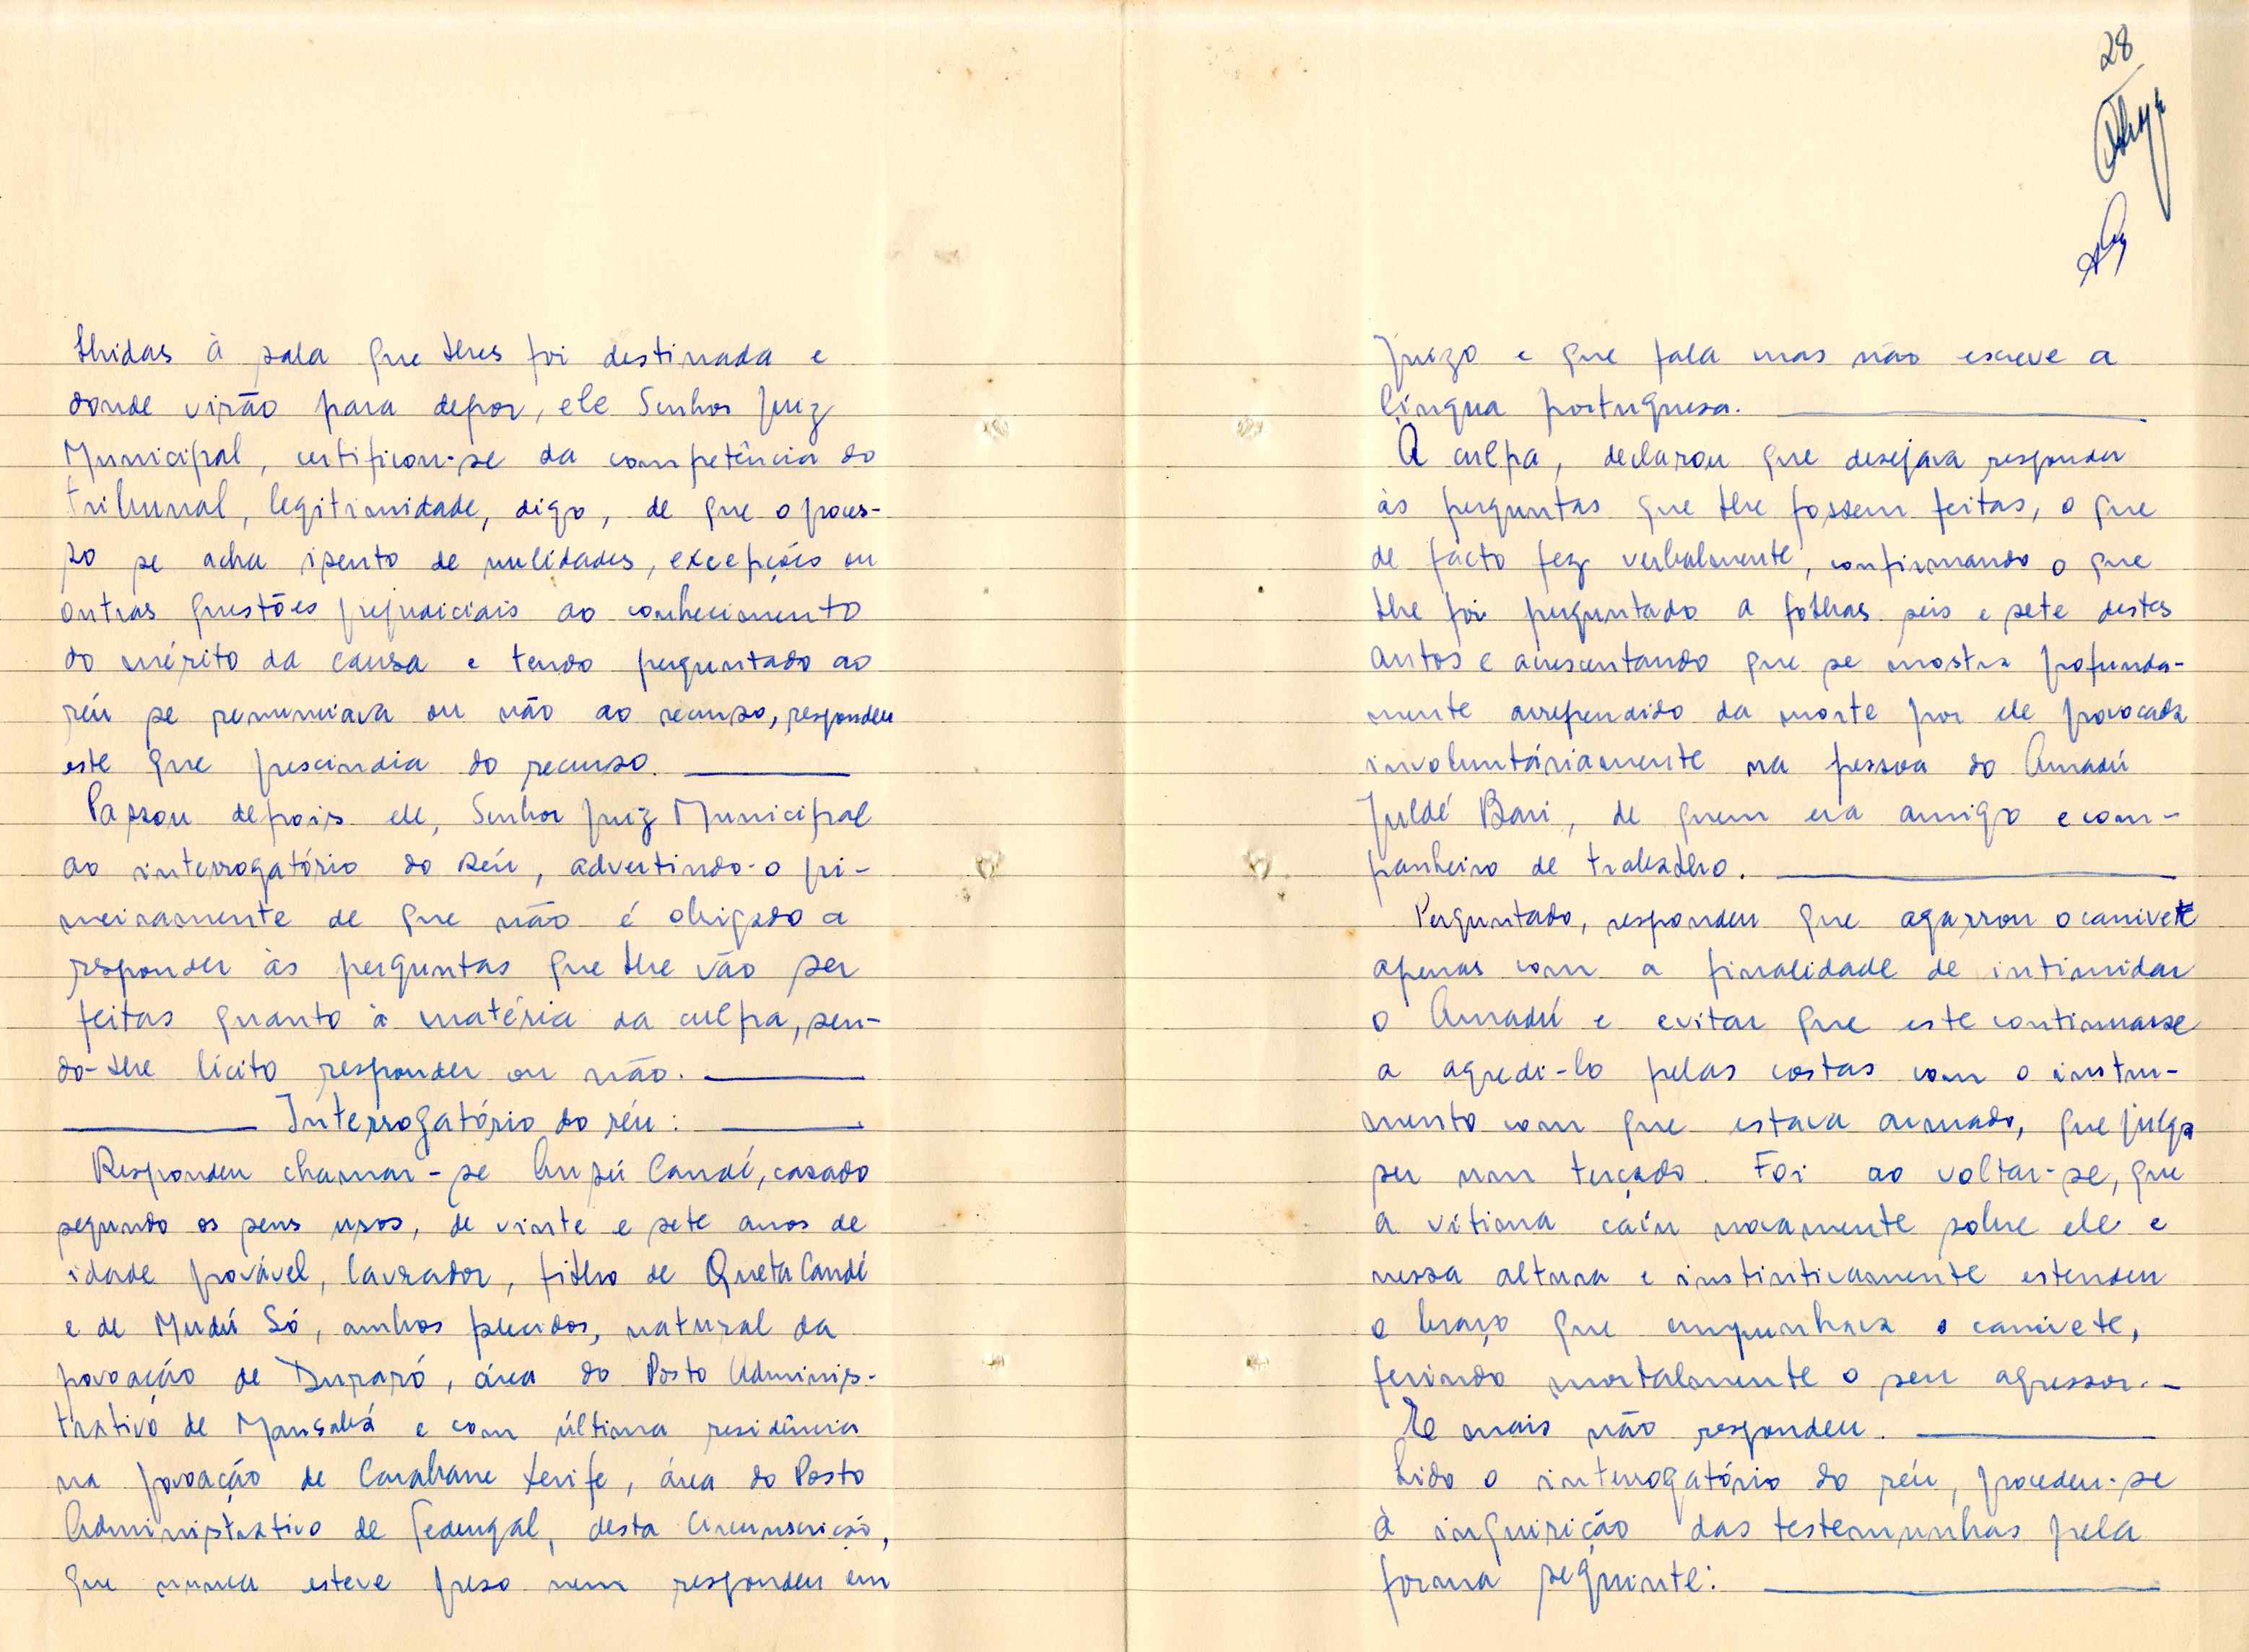 lhidas à sala que lhes foi destinada e
donde virão para depor, ele Senhor Juiz
Municipal, certificou-se da competência do
tribunal, legitimidade, digo, de que o proces-
so se acha isento de nulidades, excepções ou
outras questões prejudiciais ao conhecimento
do mérito da causa e tendo perguntado ao
réu se renunciava ou não ao recurso, respondeu
este que prescindia do recurso.
Passou depois ele, Senhor Juiz Municipal
ao interrogatório do réu, advertindo-o pri-
meiramente de que não é obrigado a
responder às perguntas que lhe vão ser
feitas quanto à matéria da culpa, sen-
do-lhe lícito responder ou não.
Interrogatório do réu:
Respondeu chamar-se Ansú Candé, casado
segundo os seus usos, de vinte e sete anos de
idade provável, lavrador, filho de Queta Candé
e de Mudú Só, ambos falecidos, natural da
povoação de, área do Posto Adminis-
trativo de Mansabá e com última residência
na povoação de Carabane Xerife, área do Posto
Administrativo de, desta Circunscrição,
que nunca esteve preso nem respondeu em
28
Juízo e que fala mas não escreve a
língua portuguesa.
À culpa, declarou que desejava responder
às perguntas que lhe fossem feitas, o que
de facto fez verbalmente, confirmando o que
lhe foi perguntado a folhas seis e sete destes
autos e acrescentando que se mostra profunda-
mente arrependido da morte por ele provocada
involuntáriamente na pessoa do Amadú
Juldé Bari, de quem era amigo e com-
panheiro de trabalho.
Perguntado, respondeu que agarrou o canivete
apenas com a finalidade de intimidar
o Amadú e evitar que este continuasse
a agredi-lo pelas costas com o instru-
mento com que estava armado, que julga
ser um terçado. Foi ao voltar-se, que
a vítima caíu novamente sobre ele e
nessa altura e instintivamente estendeu
o braço que empunhava o canivete,
ferindo mortalmente o seu agressor.-
E mais não respondeu.
Lido o interrogatório do réu, procedeu-se
à inquirição das testemunhas pela
forma seguinte: